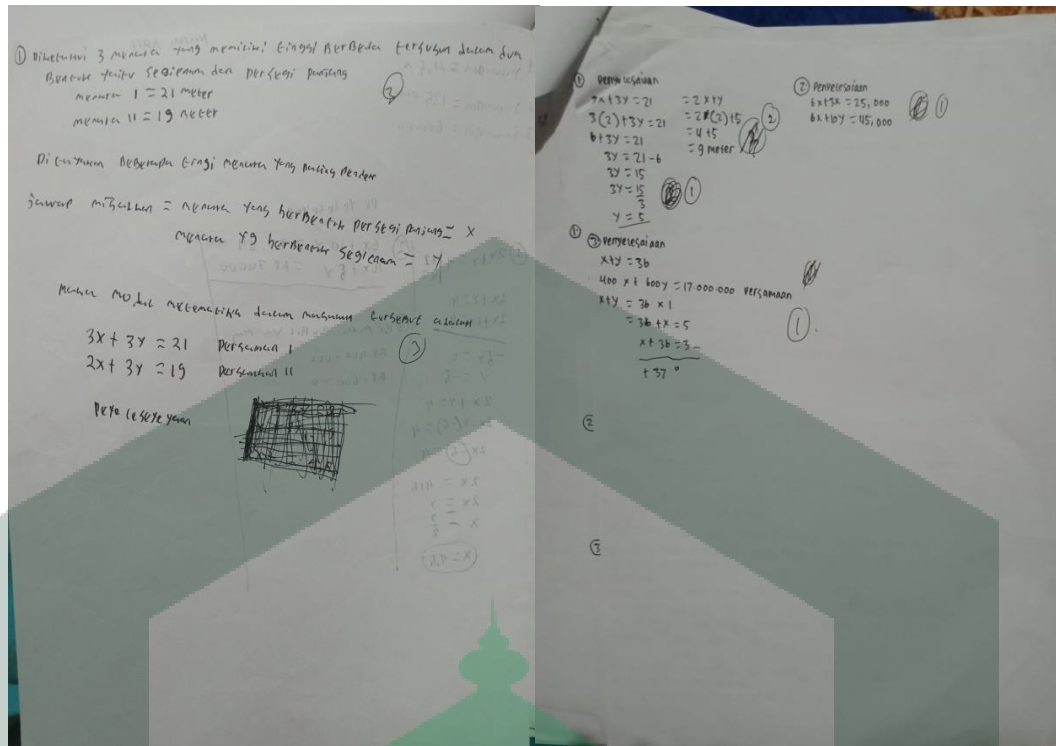 ① Diketahui 3 menara yang memiliki tinggi BerBeda tersusun dalam dua
Bentuk yaitu segienam dan persegi panjang
menara I = 21 meter
menara II = 19 meter
③
Ditanyakan Beberapa tinggi menara yang paling pendek
jawap misalkan = menara yang berBentuk persegi panjang = x
menara yg berBentuk segienam = y
maka model matematika dalam tersebut adalah
3x + 3y = 21 Persamaan I
2x + 3y = 19 Persamaan II
③
① Penyelesaian
3x + 3y = 21
3(2) + 3y = 21
6 + 3y = 21
3y = 21 - 6
3y = 15
3y = 15
3
y = 5
①
= 2x + y
= 2(2) + 5
= 4 + 5
= 9 meter
②
② Penyelesaian
6x + 3x = 25,000
6x + 10y = 45,000
①
③ Penyelesaian
x + y = 36
400 x + 600y = 17.000.000 Persamaan
x + y = 36 x 1
= 36 + x = 5
x + 36 = 3 -
+ 37 °
①.
②
③